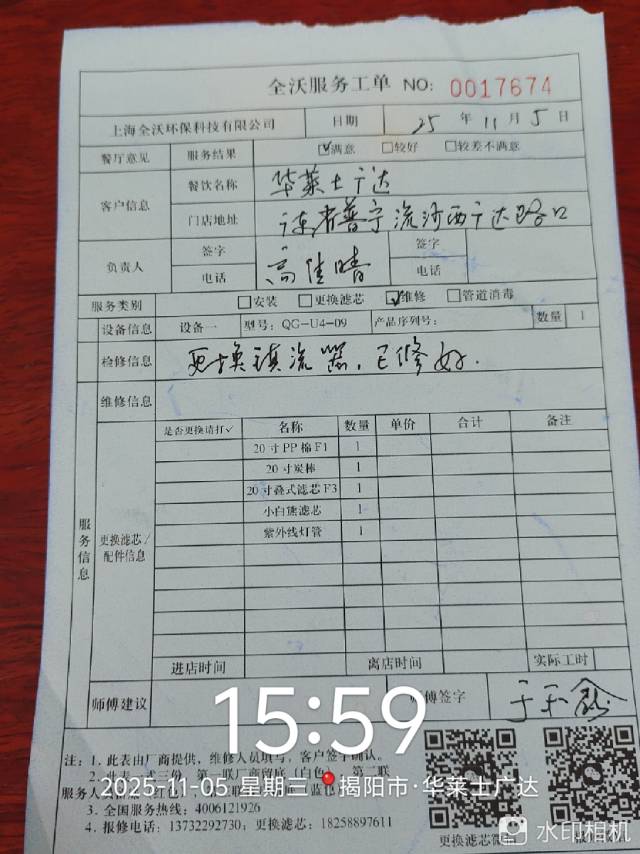 全沃服务工单 NO: 0017674
上海全沃环保科技有限公司 日期 25 年 11 月 5 日
餐厅意见 服务结果 ☑满意 □较好 □较差不满意
客户信息 餐饮名称 华莱士广达
门店地址 广东省普宁流沙西广达路口
负责人 签字 高佳晴 签字
电话 电话
服务类别 □安装 □更换滤芯 ☑维修 □管道消毒
设备信息 设备一 型号: QG-U4-09 产品序列号: 数量 1
检修信息 更换镇流器,已修好.
维修信息
服务信息
更换滤芯/配件信息
是否更换请打✓ 名称 数量 单价 合计 备注
20寸PP棉F1 1
20寸炭棒 1
20寸叠式滤芯F3 1
小白熊滤芯 1
紫外线灯管 1
进店时间 离店时间 实际工时
师傅建议 师傅签字
15:59
注: 1. 此表由厂商提供, 维修人员填写, 客户签字确认。
2. 此表一式三份, 第一联厂商留底(白色) 第二联
服务人
2025-11-05 星期三 揭阳市·华莱士广达
3. 全国服务热线: 4006121926
4. 报修电话: 13732292730; 更换滤芯: 18258897611
更换滤芯
水印相机